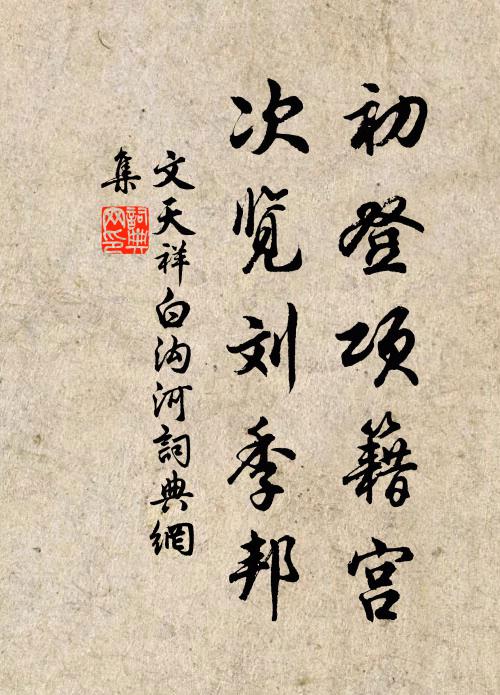 初登项籍宫
次览刘季邦
文天祥白沟河詞典網
集
詞典網印